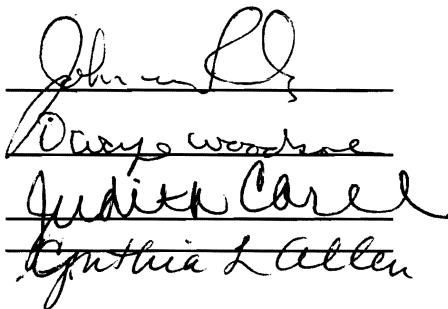 John
Woodson
Judith Carel
Cynthia L Allen